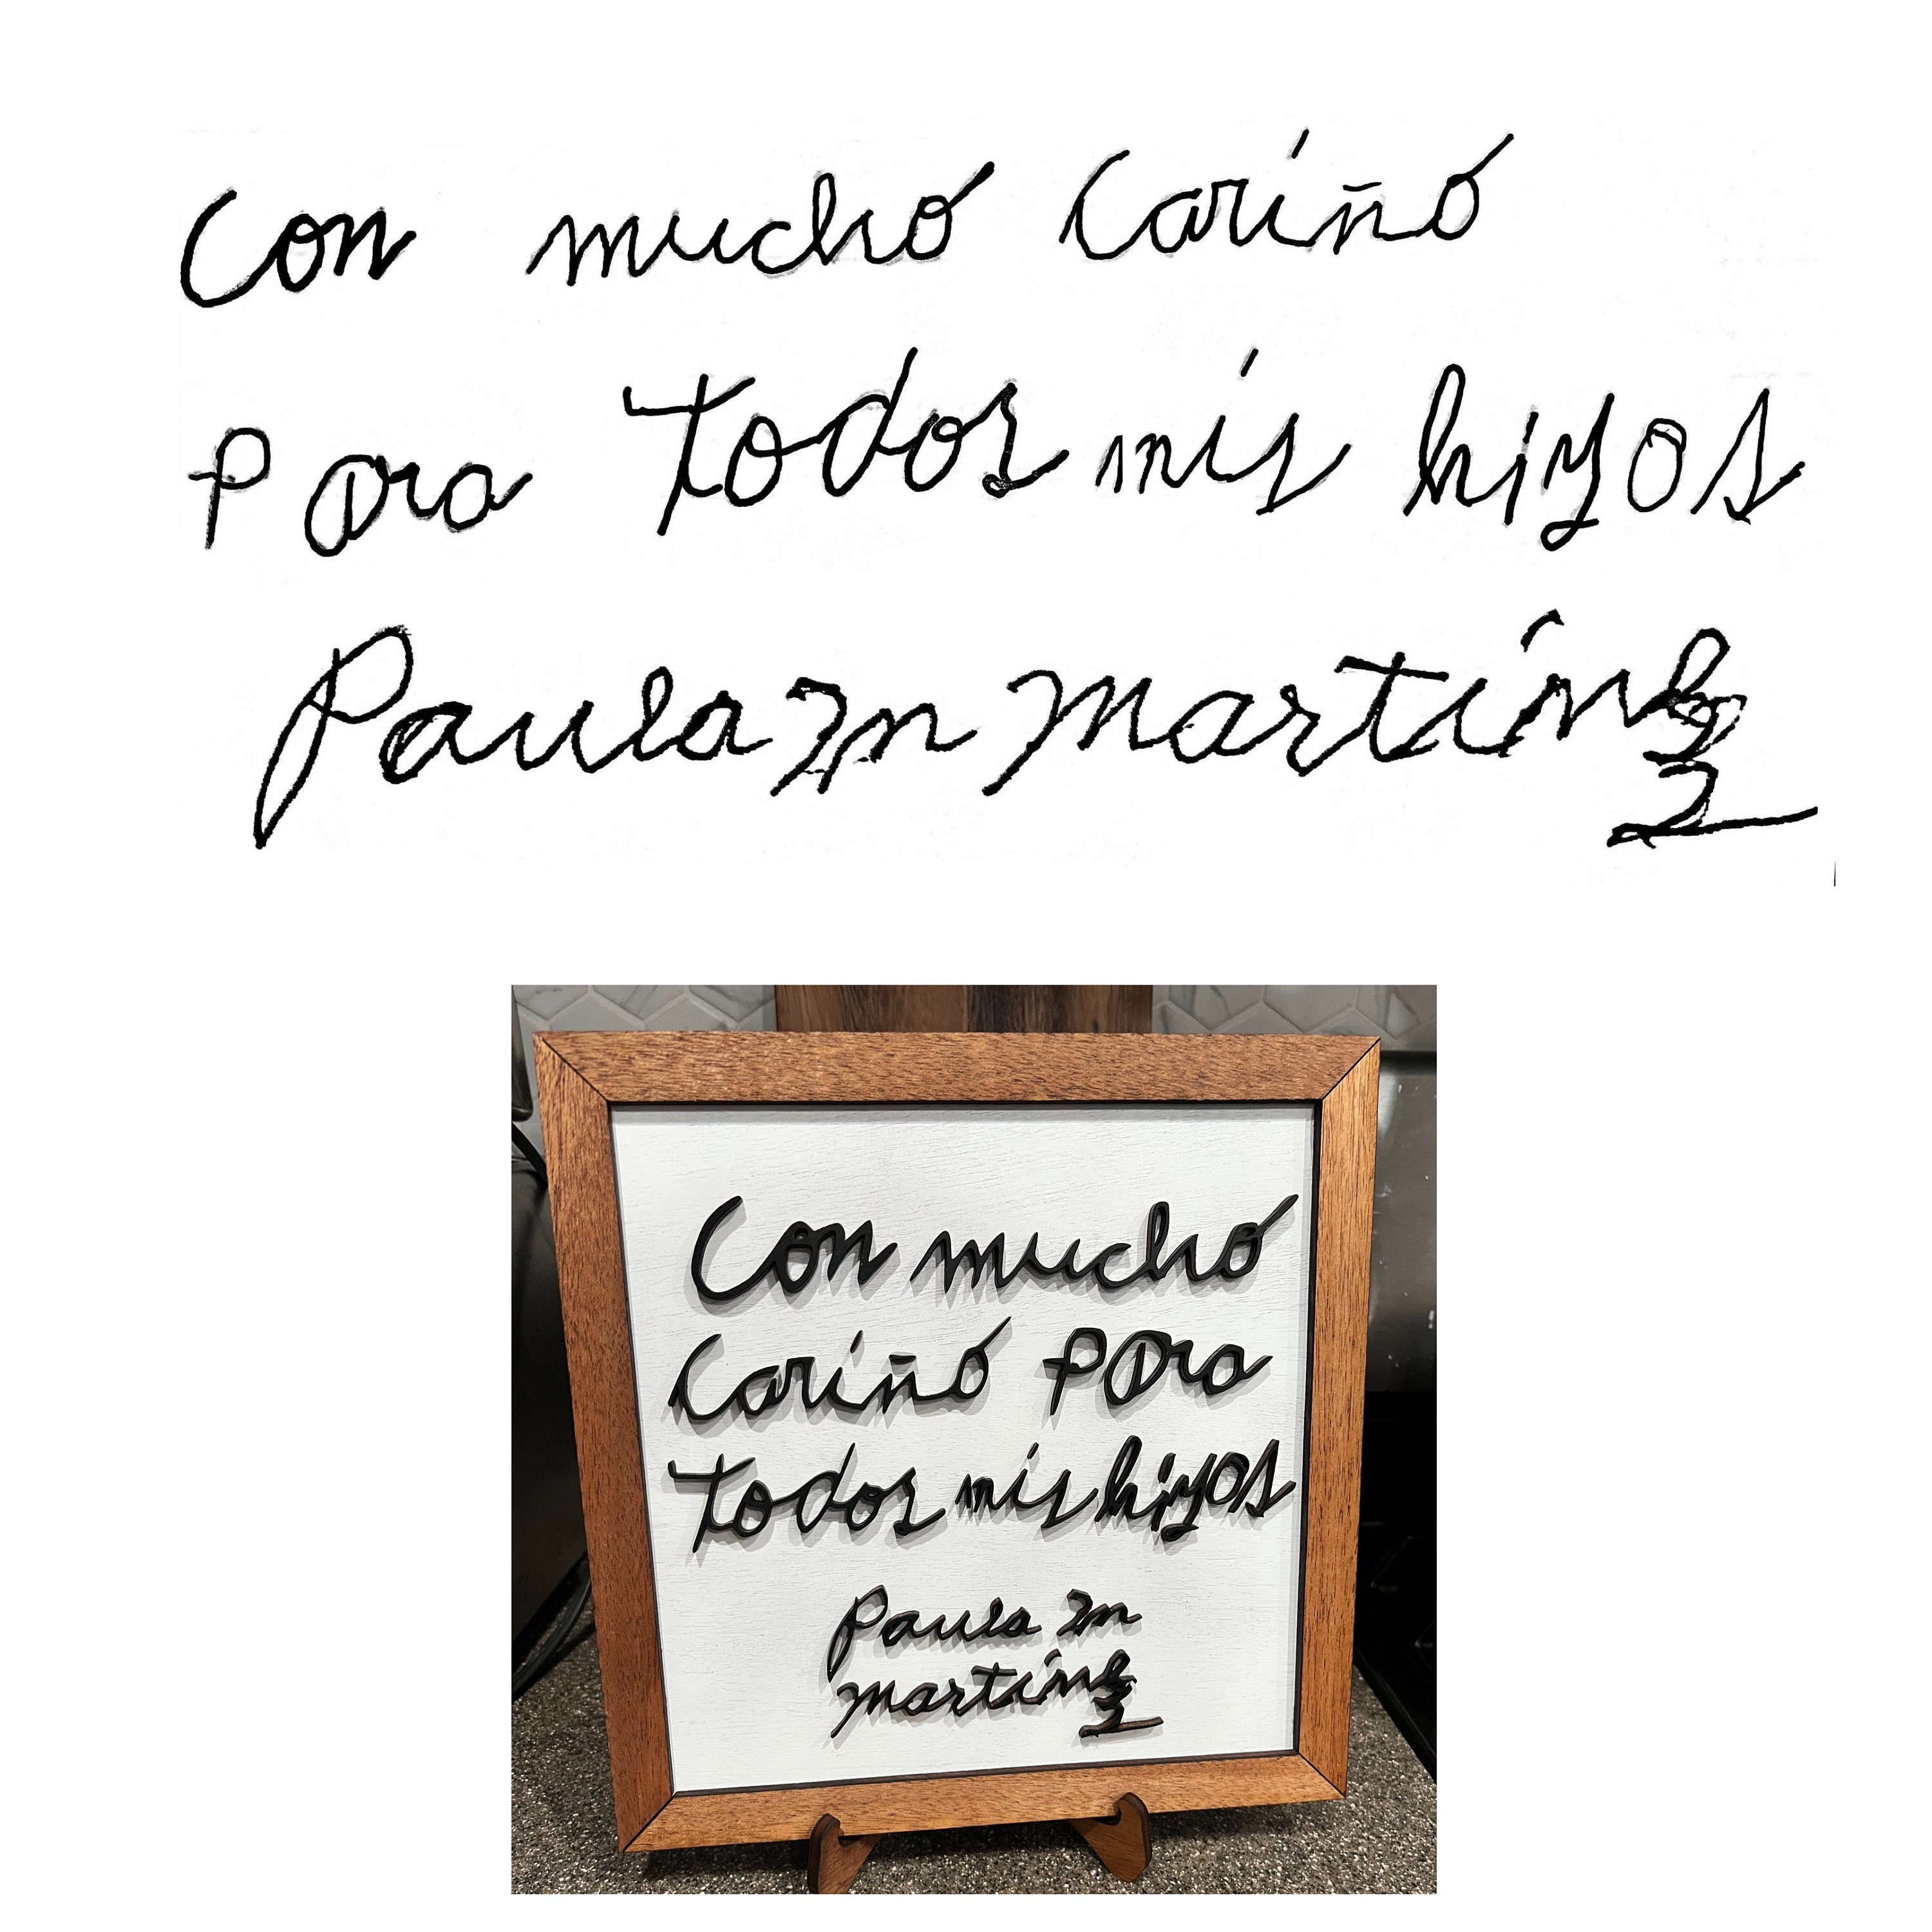 Con muchó Cariñó
Para Todos mis hiyos
Paula m Martínez
Con muchó
Cariñó Para
Todos mis hiyos
Paula m
Martínez